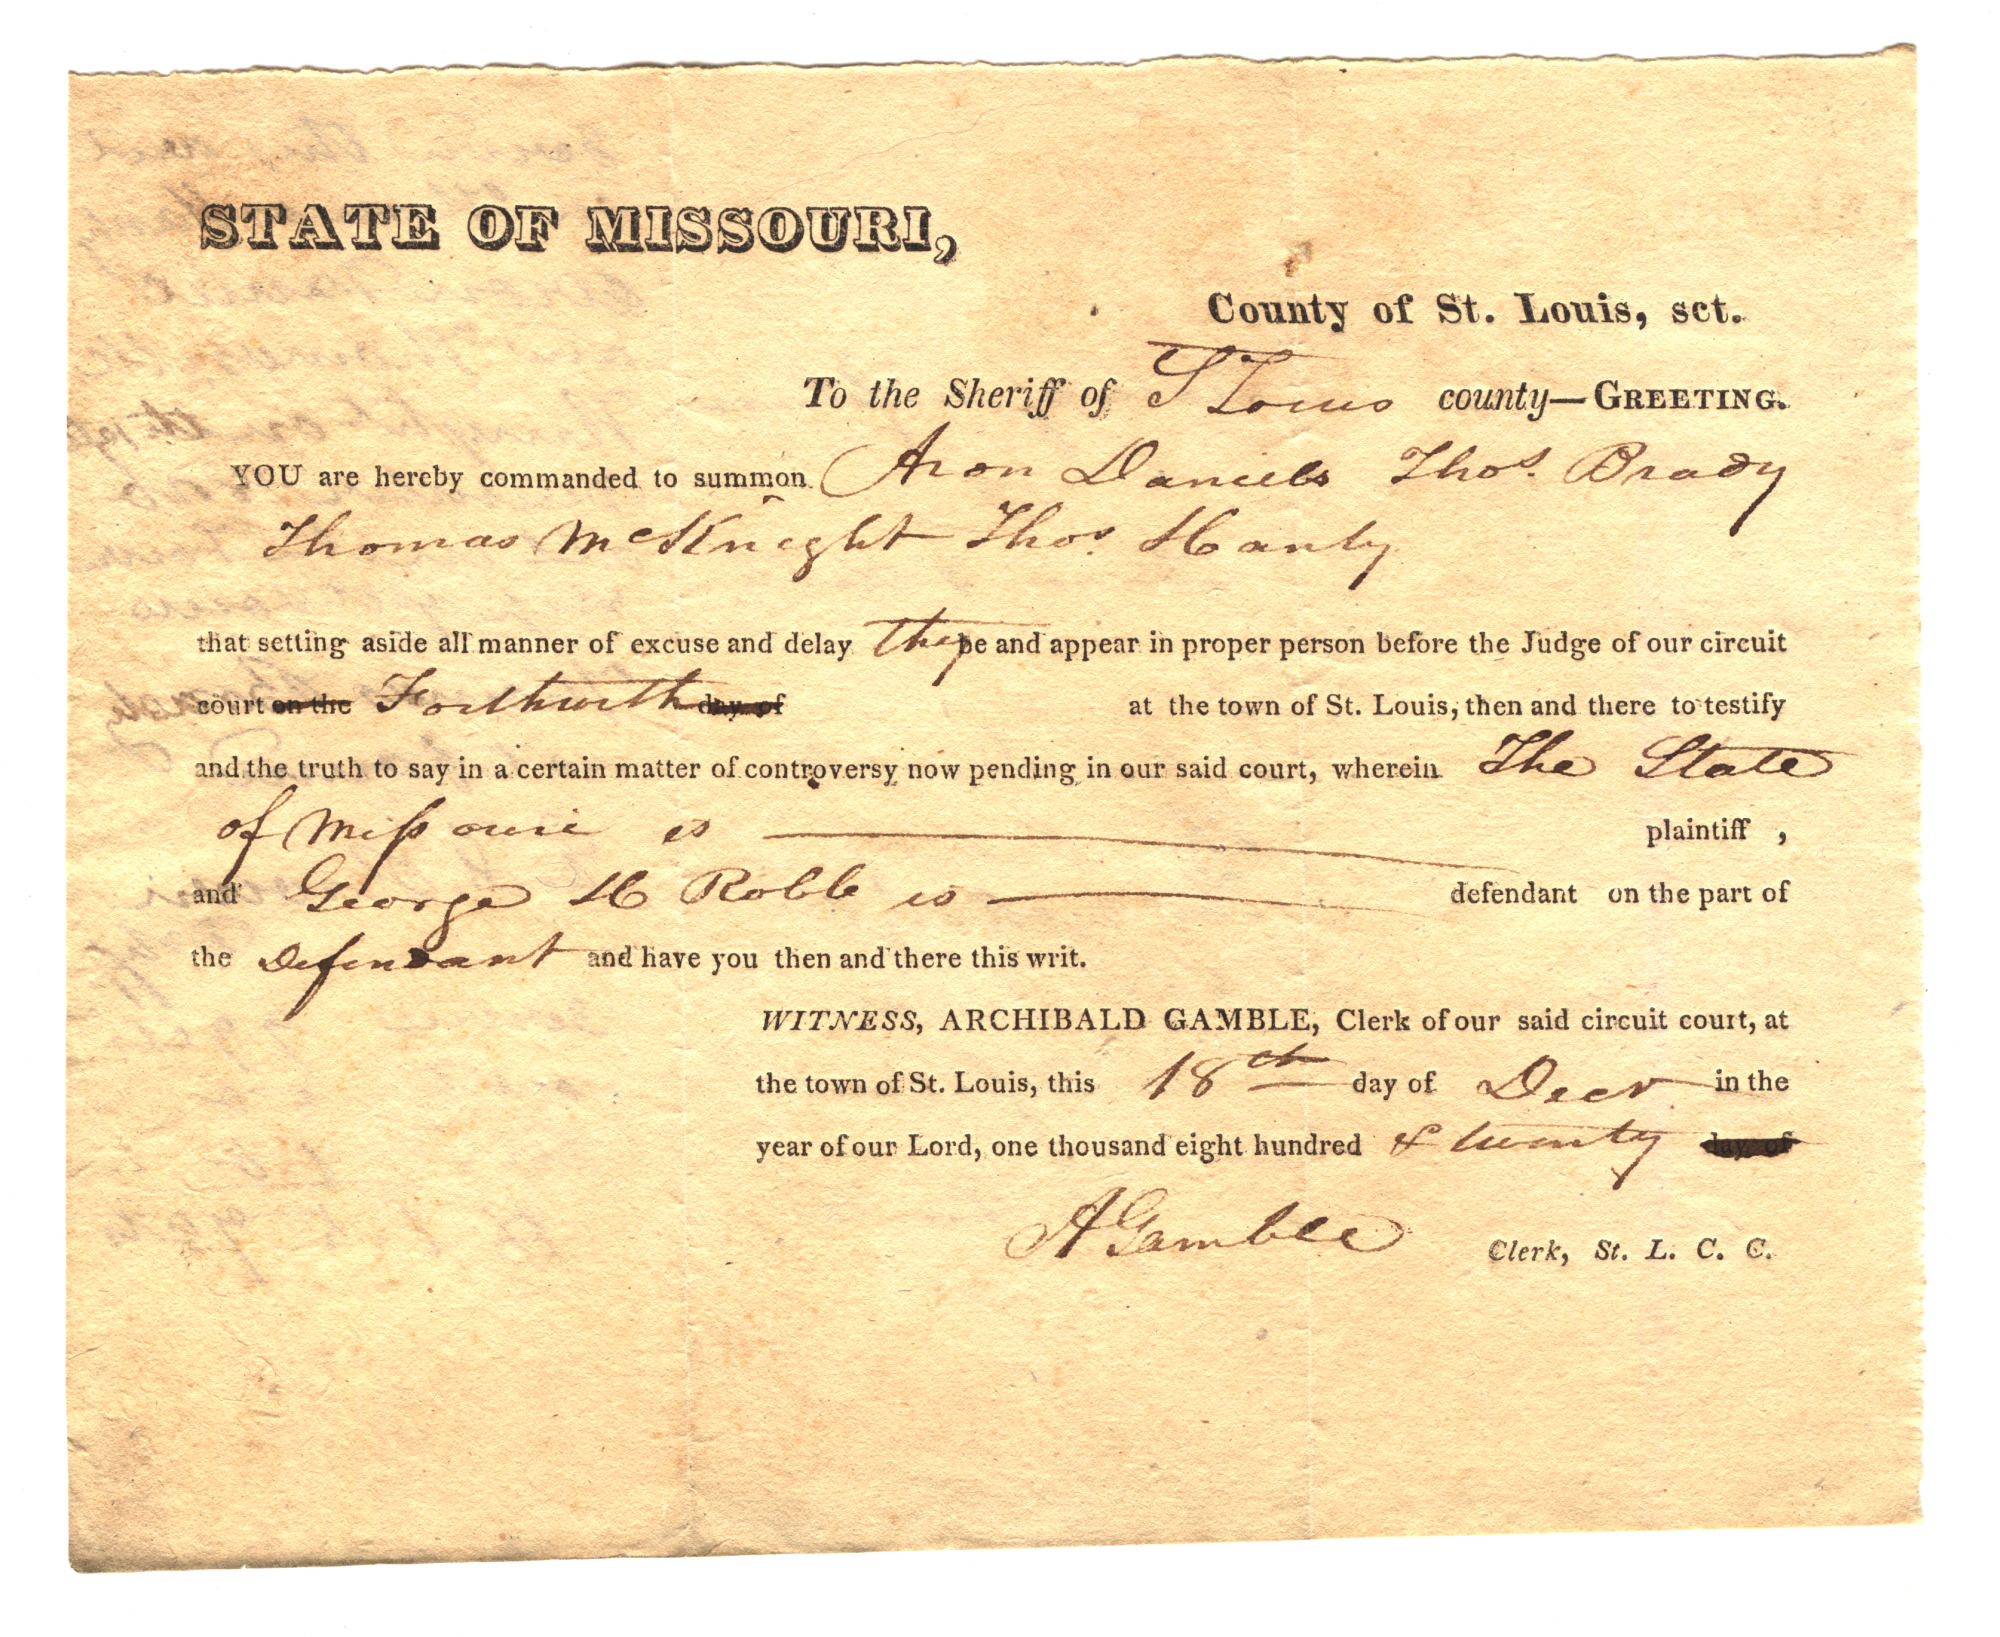 STATE OF MISSOURI,
County of St. Louis, sct.
To the Sheriff of St Louis county—GREETING.
YOU are hereby commanded to summon Aron Daniels Thos. Brady
Thomas McKnight Thos. Hanly
that setting aside all manner of excuse and delay they be and appear in proper person before the Judge of our circuit
court on the Forthwith day of at the town of St. Louis, then and there to testify
and the truth to say in a certain matter of controversy now pending in our said court, wherein The State
of Missouri is plaintiff ,
and George H Robb is defendant on the part of
the Defendant and have you then and there this writ.
WITNESS, ARCHIBALD GAMBLE, Clerk of our said circuit court, at
the town of St. Louis, this 18th day of Decr in the
year of our Lord, one thousand eight hundred & twenty day of
A Gamble Clerk, St. L. C. C.